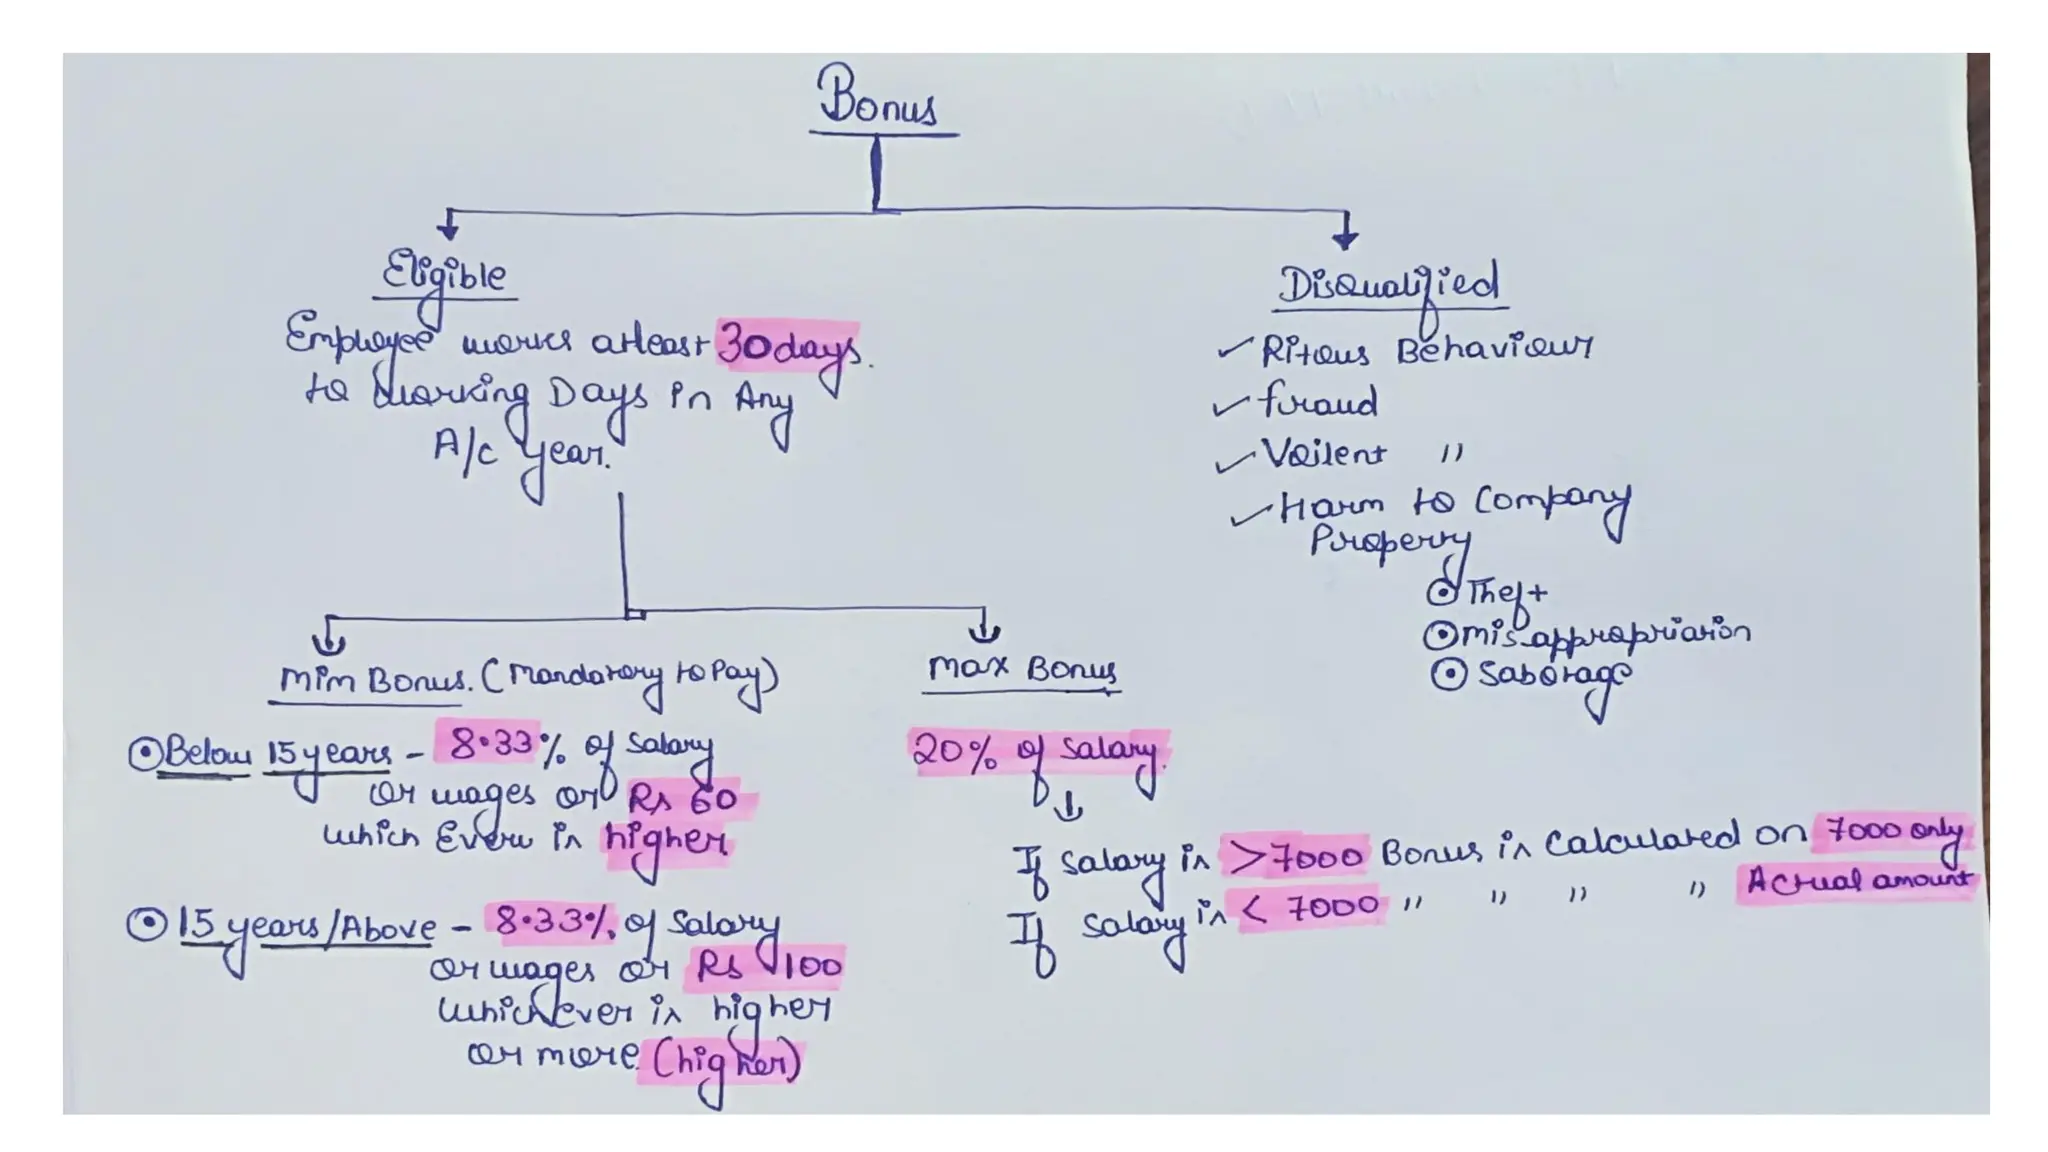 Bonus
Eligible
Employee works atleast 30 days.
to working Days in Any
A/c year.
Disqualified
Ritous Behaviour
fraud
Voilent "
Harm to Company
Property
Theft
Misappropriation
Sabotage
Min Bonus. (Mandatory to Pay)
Below 15 years - 8.33% of Salary
or wages or Rs 60
which Ever is higher
15 years/Above - 8.33% of Salary
or wages or Rs 100
Whichever is higher
or more (higher)
Max Bonus
20% of Salary.
If Salary is >7000 Bonus is Calculated on 7000 only
If Salary is < 7000 " " " " Actual amount